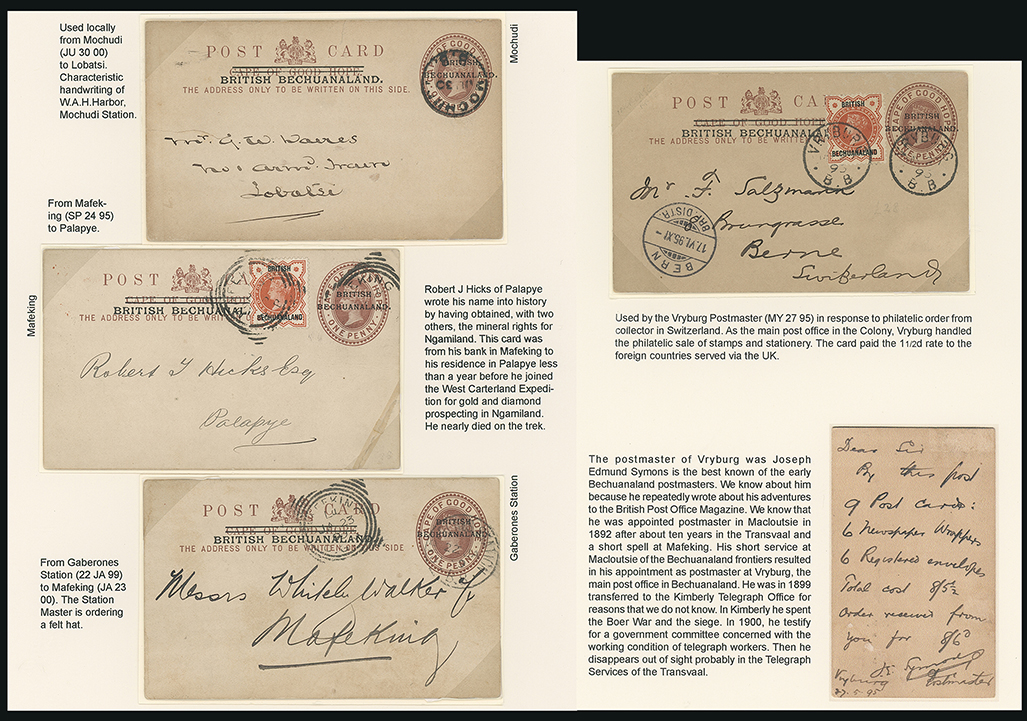 Used locally
from Mochudi
(JU 30 00)
to Lobatsi.
Characteristic
handwriting of
W.A.H.Harbor,
Mochudi Station.
POST CARD
CAPE OF GOOD HOPE.
BRITISH BECHUANALAND.
THE ADDRESS ONLY TO BE WRITTEN ON THIS SIDE.
BRITISH
BECHUANALAND.
JU 30
Mochudi
Mr. G. W.
Lobatsi
From Mafek-
ing (SP 24 95)
to Palapye.
Mafeking
POST
CAPE OF GOOD HOP
BRITISH BECHUANAL
BRITISH
BECHUANALAND
BRITISH
BECHUANALAND.
ONE PENNY
Robert J Hicks Esq
Palapye
Robert J Hicks of Palapye
wrote his name into history
by having obtained, with two
others, the mineral rights for
Ngamiland. This card was
from his bank in Mafeking to
his residence in Palapye less
than a year before he joined
the West Carterland Expedi-
tion for gold and diamond
prospecting in Ngamiland.
He nearly died on the trek.
From Gaberones
Station (22 JA 99)
to Mafeking (JA 23
00). The Station
Master is ordering
a felt hat.
POST CARD
CAPE OF GOOD HOPE.
BRITISH BECHUANALAND.
THE ADDRESS ONLY TO BE WRITTEN ON THIS SIDE
MAFEKING
JA 23
CAPE OF GOOD HOPE
BRITISH
BECHUANALAND.
ONE PENNY
Gaberones Station
Messrs Whiteley Walker
Mafeking
POST CA
CAPE OF GOOD HOPE.
BRITISH BECHUANAL
THE ADDRESS ONLY TO BE WRITTEN
BRITISH
BECHUANALAND
CAPE OF GOOD HOPE
BRITISH
BECHUANALAND.
ONE PENNY
VRYBURG
95
B.B.
VRYBURG
95
B.B.
Mr. F. Salzmann
Brungrasse
Berne
Switzerland
BERN
17.VI.95.XI
BRF. DISTR.
Used by the Vryburg Postmaster (MY 27 95) in response to philatelic order from
collector in Switzerland. As the main post office in the Colony, Vryburg handled
the philatelic sale of stamps and stationery. The card paid the 11/2d rate to the
foreign countries served via the UK.
The postmaster of Vryburg was Joseph
Edmund Symons is the best known of the early
Bechuanaland postmasters. We know about him
because he repeatedly wrote about his adventures
to the British Post Office Magazine. We know that
he was appointed postmaster in Macloutsie in
1892 after about ten years in the Transvaal and
a short spell at Mafeking. His short service at
Macloutsie of the Bechuanaland frontiers resulted
in his appointment as postmaster at Vryburg, the
main post office in Bechuanaland. He was in 1899
transferred to the Kimberly Telegraph Office for
reasons that we do not know. In Kimberly he spent
the Boer War and the siege. In 1900, he testify
for a government committee concerned with the
working condition of telegraph workers. Then he
disappears out of sight probably in the Telegraph
Services of the Transvaal.
Dear Sir
By this post
9 Post cards:
6 Newspaper Wrappers
6 Registered envelopes
Total cost 8/5½
Order received from
you for 8/6d
J.E. Symons
Vryburg Postmaster
27.5.95